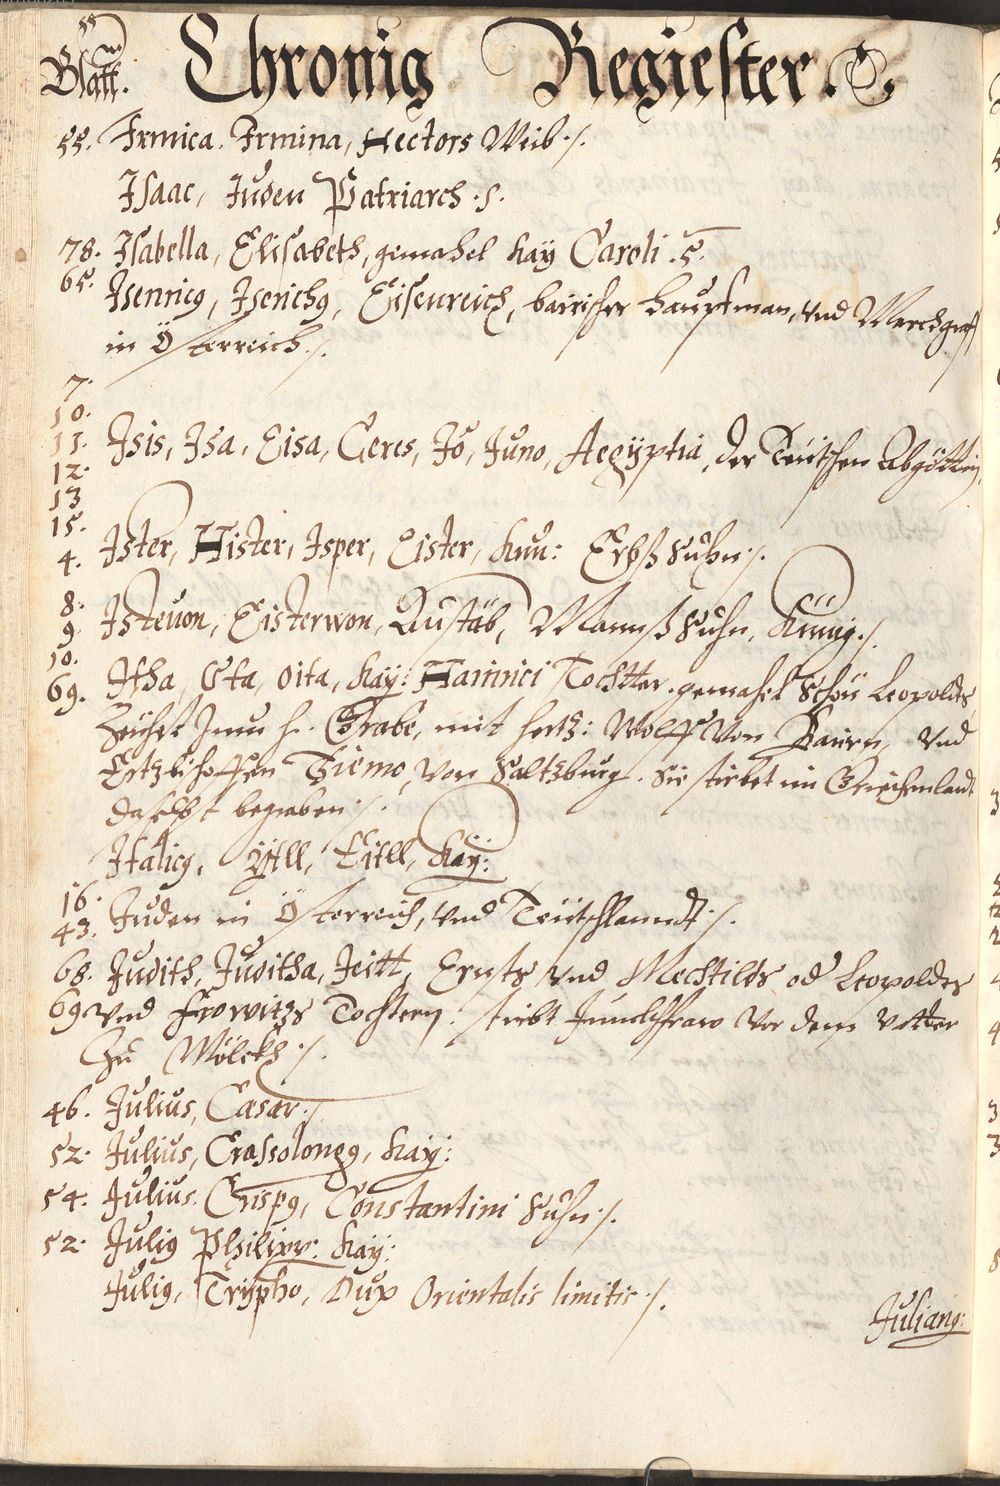 Blatt. Chronig Regiester
55. Irmica. Irmina, Hectors Weib ./.
Isaac, Juden Patriarch .s.
78. Isabella, Elisabeth, gemahel Kay Caroli .5.
65. Isenricg, Iserichg, Eisenreich, bairischer Hauptman, vnd Marchgraff
in Österreich ./.
7.
10.
11. Isis, Isa, Eisa, Ceres, Jo, Juno, Aegÿptia, der Teütschen Abgöttin,
12.
13
15.
4. Ister, Hister, Isper, Eister, Künn: Erbß Suhn ./.
8. Isteuon, Eisterwon, Austäb, Mannß Suhn, Künig ./.
9.
10.
69. Itha, Ita, Oita, Kaÿ: Hainrici Tochtter. gemahel Leopoldts
H. Grabe, mit hertz: Wolff Von Bairn, vnd
Ertzbischoffen Thiemo, Von Saltzburg. Sie stirbet im Griechenlandt
daselbst begraben ./.
Italicg, Ÿtll, Eitll, Kaÿ:
16.
43. Juden in Österreich, vnd Teütschlanndt ./.
68. Judith, Juditha, Jeitt, Ernsts vnd Mechtilds od Leopoldes
69 vnd Frowitzs Tochtern: stirbt Junckhfraw Vor dem Vatter
Zu Mölckh ./.
46. Julius, Cæsar ./.
52. Julius, Crassolongg, Kaÿ:
54. Julius. Crispg, Constantini Suhn ./.
52. Julig Philipp: Kaÿ:
Julig, Trÿpho, Dux Orientalis limitis ./.
Juliang: